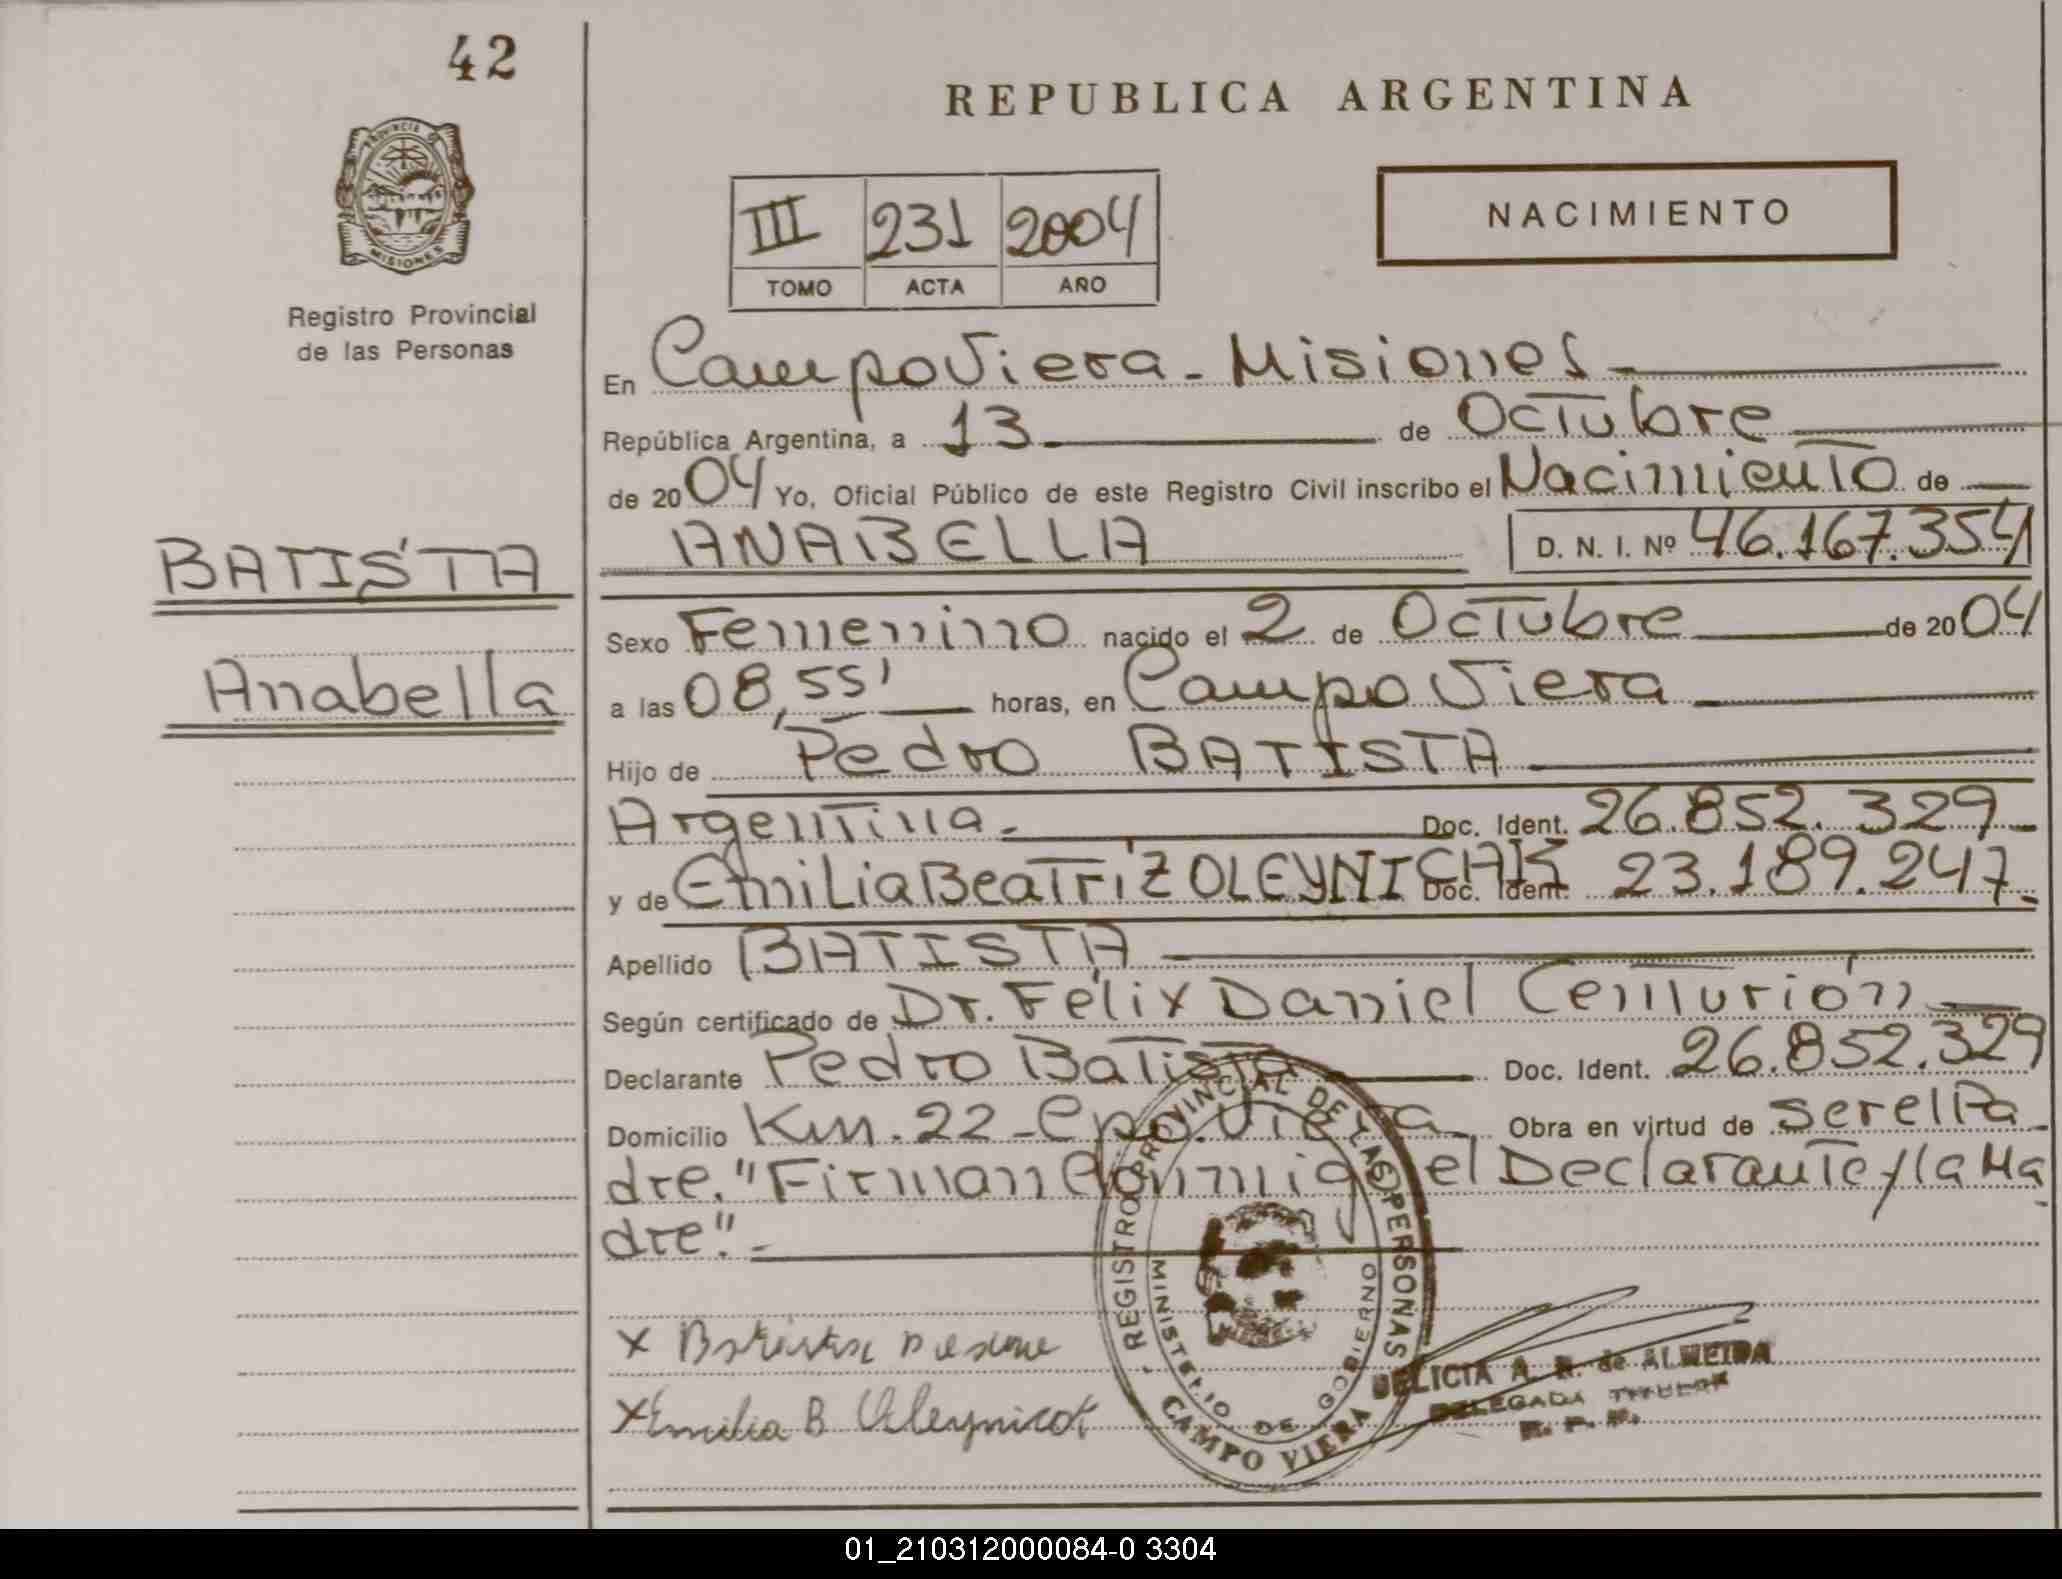 42
REPUBLICA ARGENTINA
PROVINCIA DE
MISIONES
Registro Provincial
de las Personas
III 231 2004
TOMO ACTA AÑO
NACIMIENTO
En Campo Viera - Misiones
República Argentina, a 13 de Octubre
de 2004 Yo, Oficial Público de este Registro Civil inscribo el Nacimiento de
BATISTA
ANABELLA D. N. I. Nº 46.167.354
Anabella
Sexo Femenino nacido el 2 de Octubre de 2004
a las 08,55' horas, en Campo Viera
Hijo de Pedro BATISTA
Argentina.- Doc. Ident. 26.852.329-
y de Emilia Beatríz OLEYNICHAK Doc. Ident. 23.189.247.-
Apellido BATISTA
Según certificado de Dr. Félix Daniel Centurión
Declarante Pedro Batista Doc. Ident. 26.852.329
Domicilio Km. 22 - Cpo. Viera Obra en virtud de ser el Pa-
dre. "Firman Conmigo el Declarante y la Ma-
dre".-
REGISTRO PROVINCIAL DE LAS PERSONAS
MINISTERIO DE GOBIERNO
CAMPO VIERA
x Batista
x Emilia B
DELICIA A. R. de ALMEIDA
DELEGADA TITULAR
R. P. P.
01_210312000084-0 3304